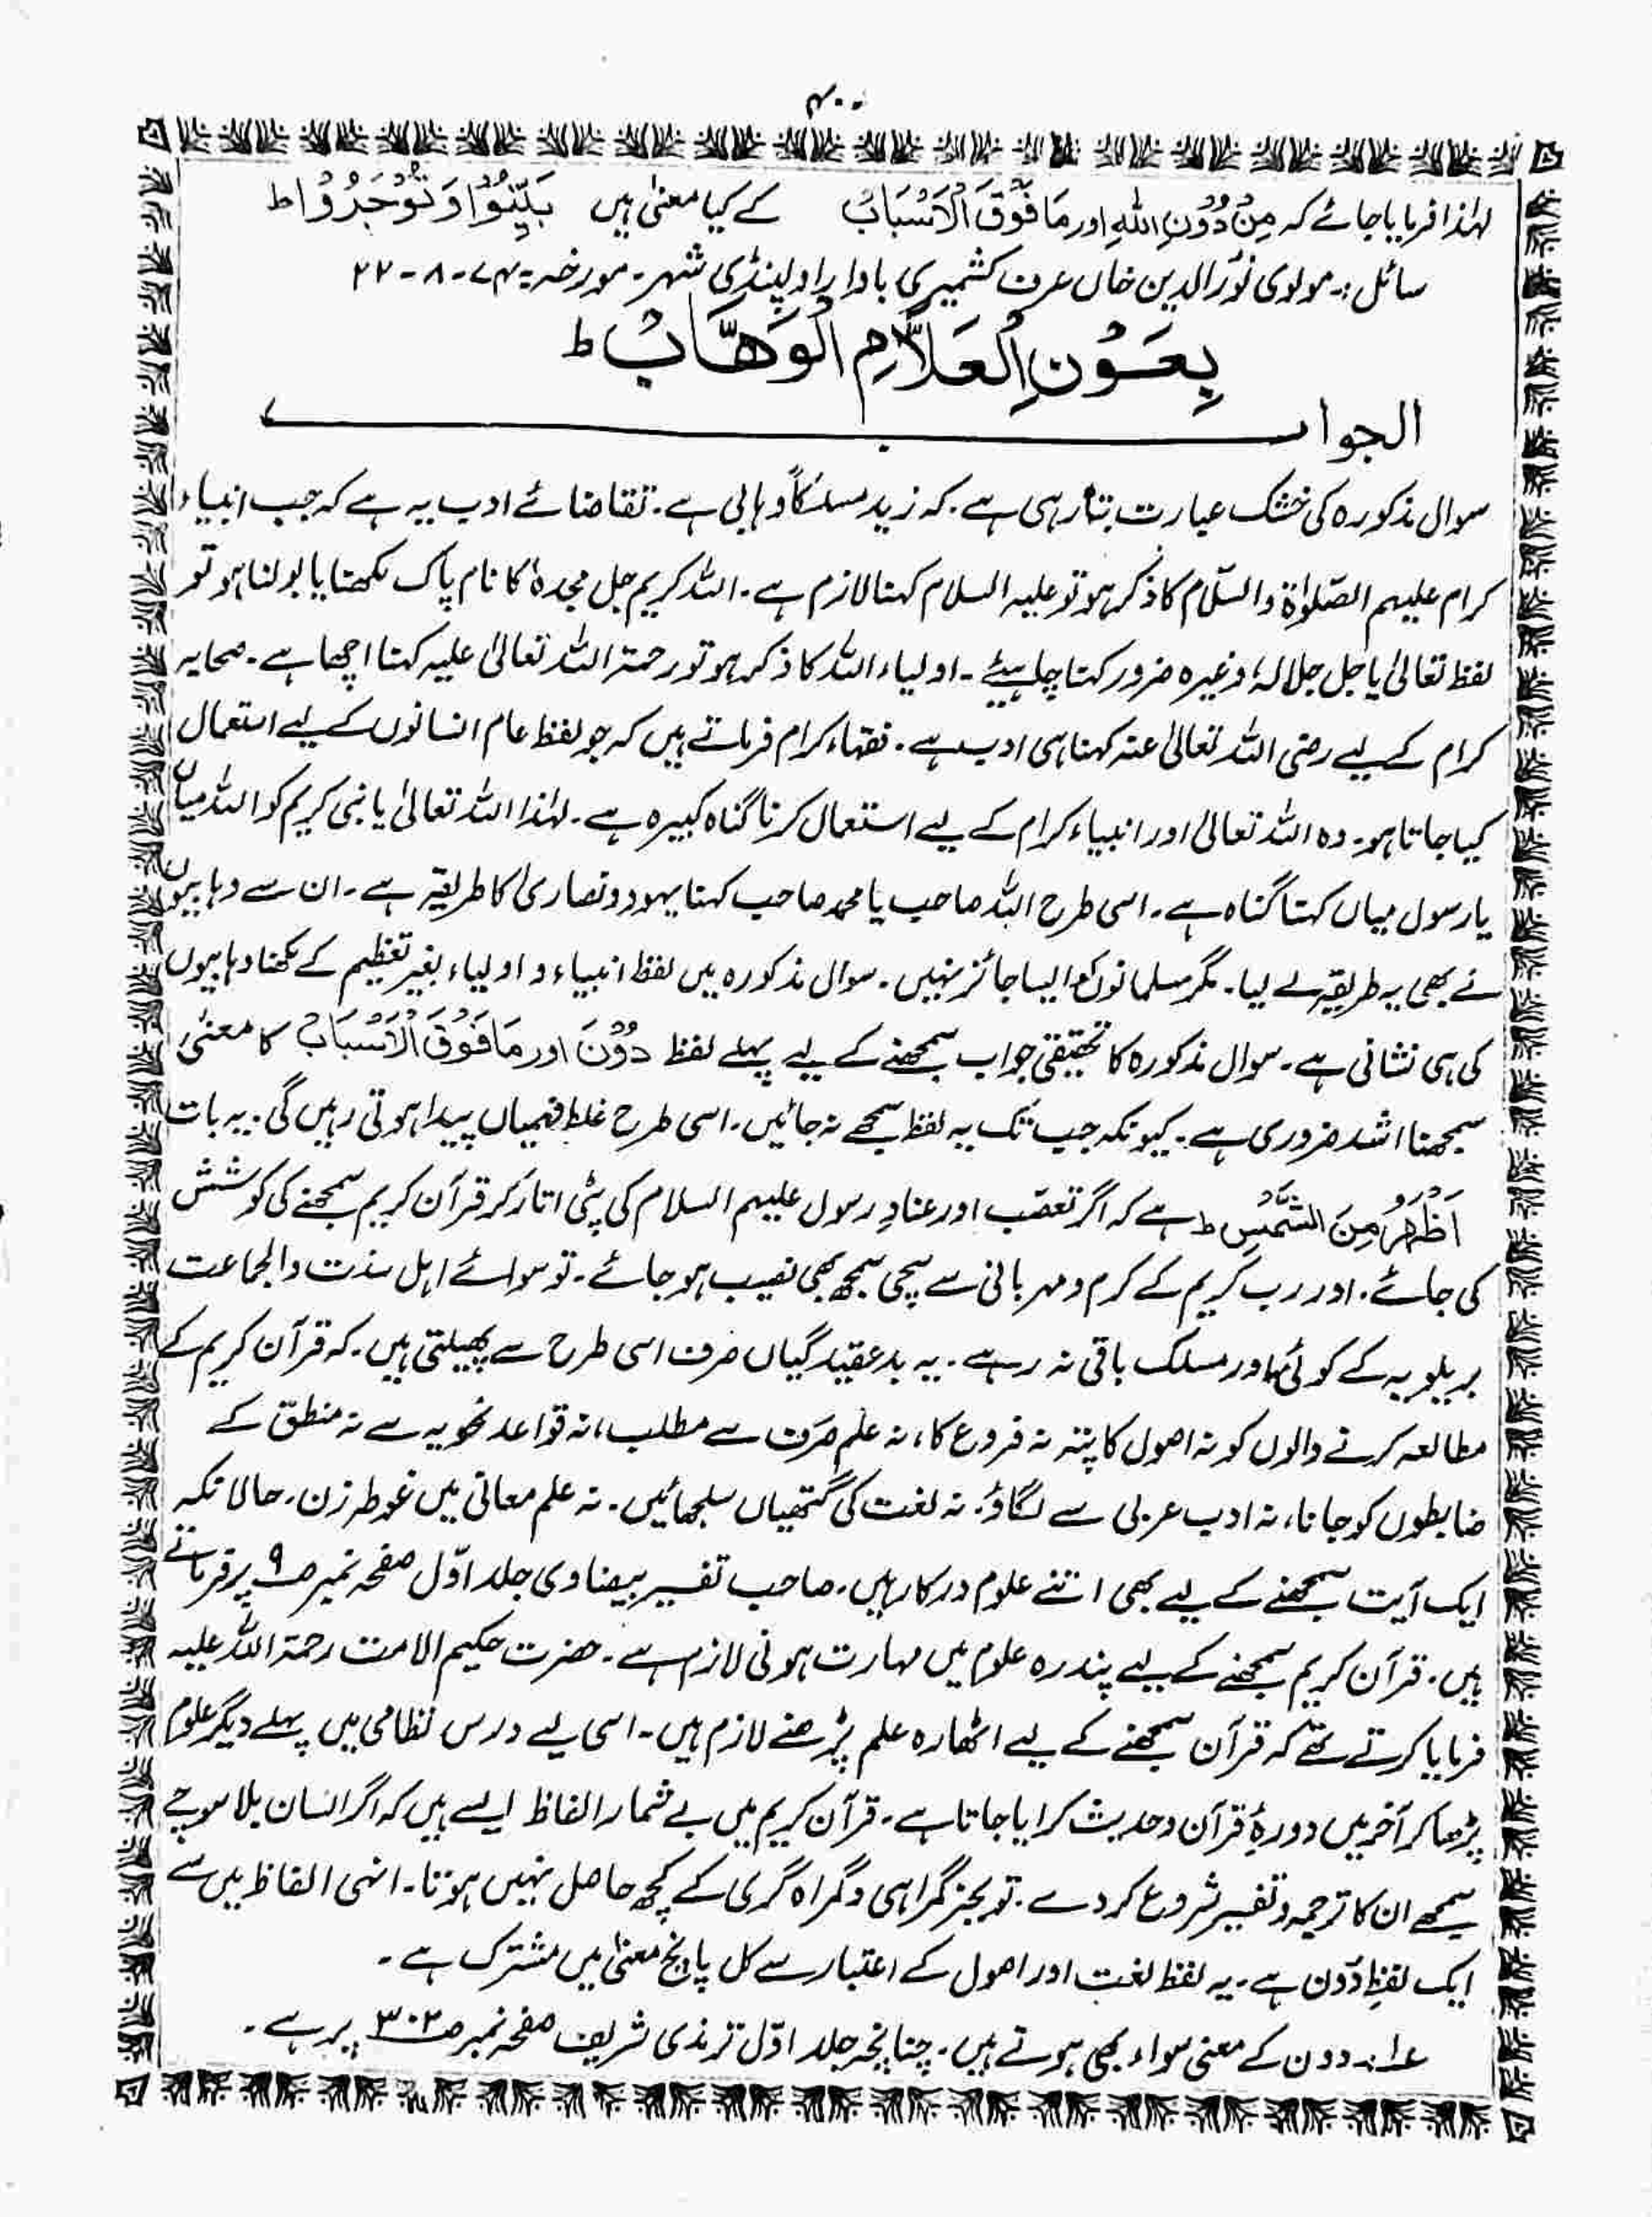 ۴۰۰
لہٰذا فرمایا جائے کہ مِنْ دُوْنِ اللہِ اور مَا فَوْقَ الْاَسْبَابْ کے کیا معنٰی ہیں بَیِّنُوْا وَ تُوْجَرُوْا ط
سائل :۔ مولوی نور الدین خاں عرف کشمیری بادا راولپنڈی شہر۔ مورخہ :۔ ۷۴ - ۸ - ۲۲
بِعَوْنِ الْعَلَّامِ الْوَھَّابْ ط
الجواب
سوال مذکورہ کی خشک عبارت بتا رہی ہے۔ کہ زید مسلکًا وہابی ہے۔ تقاضائے ادب یہ ہے کہ جب انبیاء
کرام علیہم الصّلوٰۃ والسّلام کا ذکر ہو تو علیہ السلام کہنا لازم ہے۔ اللہ کریم جل مجدہٗ کا نام پاک لکھنا یا بولنا ہو تو
لفظ تعالیٰ یا جل جلالہٗ وغیرہ ضرور کہنا چاہیئے۔ اولیاء اللہ کا ذکر ہو تو رحمۃ اللہ تعالیٰ علیہ کہنا اچھا ہے۔ صحابہ
کرام کے لیے رضی اللہ تعالیٰ عنہ کہنا ہی ادب ہے۔ فقہاء کرام فرماتے ہیں کہ جو لفظ عام انسانوں کے لیے استعمال
کیا جاتا ہو۔ وہ اللہ تعالیٰ اور انبیاء کرام کے لیے استعمال کرنا گناہ کبیرہ ہے۔ لہٰذا اللہ تعالیٰ یا نبی کریم کو اللہ میاں
یا رسول میاں کہنا گناہ ہے۔ اسی طرح اللہ صاحب یا محمد صاحب کہنا یہود و نصاریٰ کا طریقہ ہے۔ ان سے وہابیوں
نے بھی یہ طریقہ لے لیا۔ مگر مسلمانوں کو ایسا جائز نہیں۔ سوال مذکورہ میں لفظ انبیاء و اولیاء بغیر تعظیم کے لکھنا وہابیوں
کی ہی نشانی ہے۔ سوال مذکورہ کا تحقیقی جواب سمجھنے کے لیے پہلے لفظ دُوْنَ اور مَا فَوْقَ الْاَسْبَابْ کا معنٰی
سمجھنا اشد ضروری ہے۔ کیونکہ جب تک یہ لفظ سمجھے نہ جائیں۔ اسی طرح غلط فہمیاں پیدا ہوتی رہیں گی۔ یہ بات
اَظْہَرُ مِنَ الشَّمْسِ ط ہے کہ اگر تعصّب اور عنادِ رسول علیہم السلام کی پٹی اتار کر قرآن کریم سمجھنے کی کوشش
کی جائے۔ اور رب کریم کے کرم و مہربانی سے سچی سمجھ بھی نصیب ہو جائے۔ تو سوائے اہل سنت والجماعت
بریلویہ کے کوئی اور مسلک باقی نہ رہے۔ یہ بدعقیدگیاں صرف اسی طرح سے پھیلتی ہیں۔ کہ قرآن کریم کے
مطالعہ کرنے والوں کو نہ اصول کا پتہ نہ فروع کا، نہ علم صَرف سے مطلب، نہ قواعد نحویہ سے نہ منطق کے
ضابطوں کو جانا، نہ ادب عربی سے لگاؤ، نہ لغت کی گتھیاں سلجھائیں۔ نہ علم معانی میں غوطہ زن۔ حالانکہ
ایک آیت سمجھنے کے لیے بھی اتنے علوم درکار ہیں۔ صاحب تفسیر بیضاوی جلد اوّل صفحہ نمبر ص۹ پر فرماتے
ہیں۔ قرآن کریم سمجھنے کے لیے پندرہ علوم میں مہارت ہونی لازم ہے۔ حضرت حکیم الامت رحمۃ اللہ علیہ
فرمایا کرتے تھے کہ قرآن سمجھنے کے لیے اٹھارہ علم پڑھنے لازم ہیں۔ اسی لیے درس نظامی میں پہلے دیگر علوم
پڑھا کر آخر میں دورۂ قرآن و حدیث کرایا جاتا ہے۔ قرآن کریم میں بے شمار الفاظ ایسے ہیں کہ اگر انسان بلا سوچے
سمجھے ان کا ترجمہ و تفسیر شروع کر دے۔ تو بجز گمراہی و گمراہ گری کے کچھ حاصل نہیں ہوتا۔ انہی الفاظ میں سے
ایک لفظِ دُون ہے۔ یہ لفظ لغت اور اصول کے اعتبار سے کل پانچ معنٰی میں مشترک ہے۔
ع۱ :۔ دون کے معنی سواء بھی ہوتے ہیں۔ چنانچہ جلد اوّل ترمذی شریف صفحہ نمبر ص۳۰۲ پر ہے۔